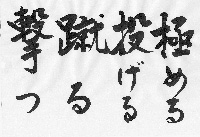 極める
投げる
蹴る
撃つ